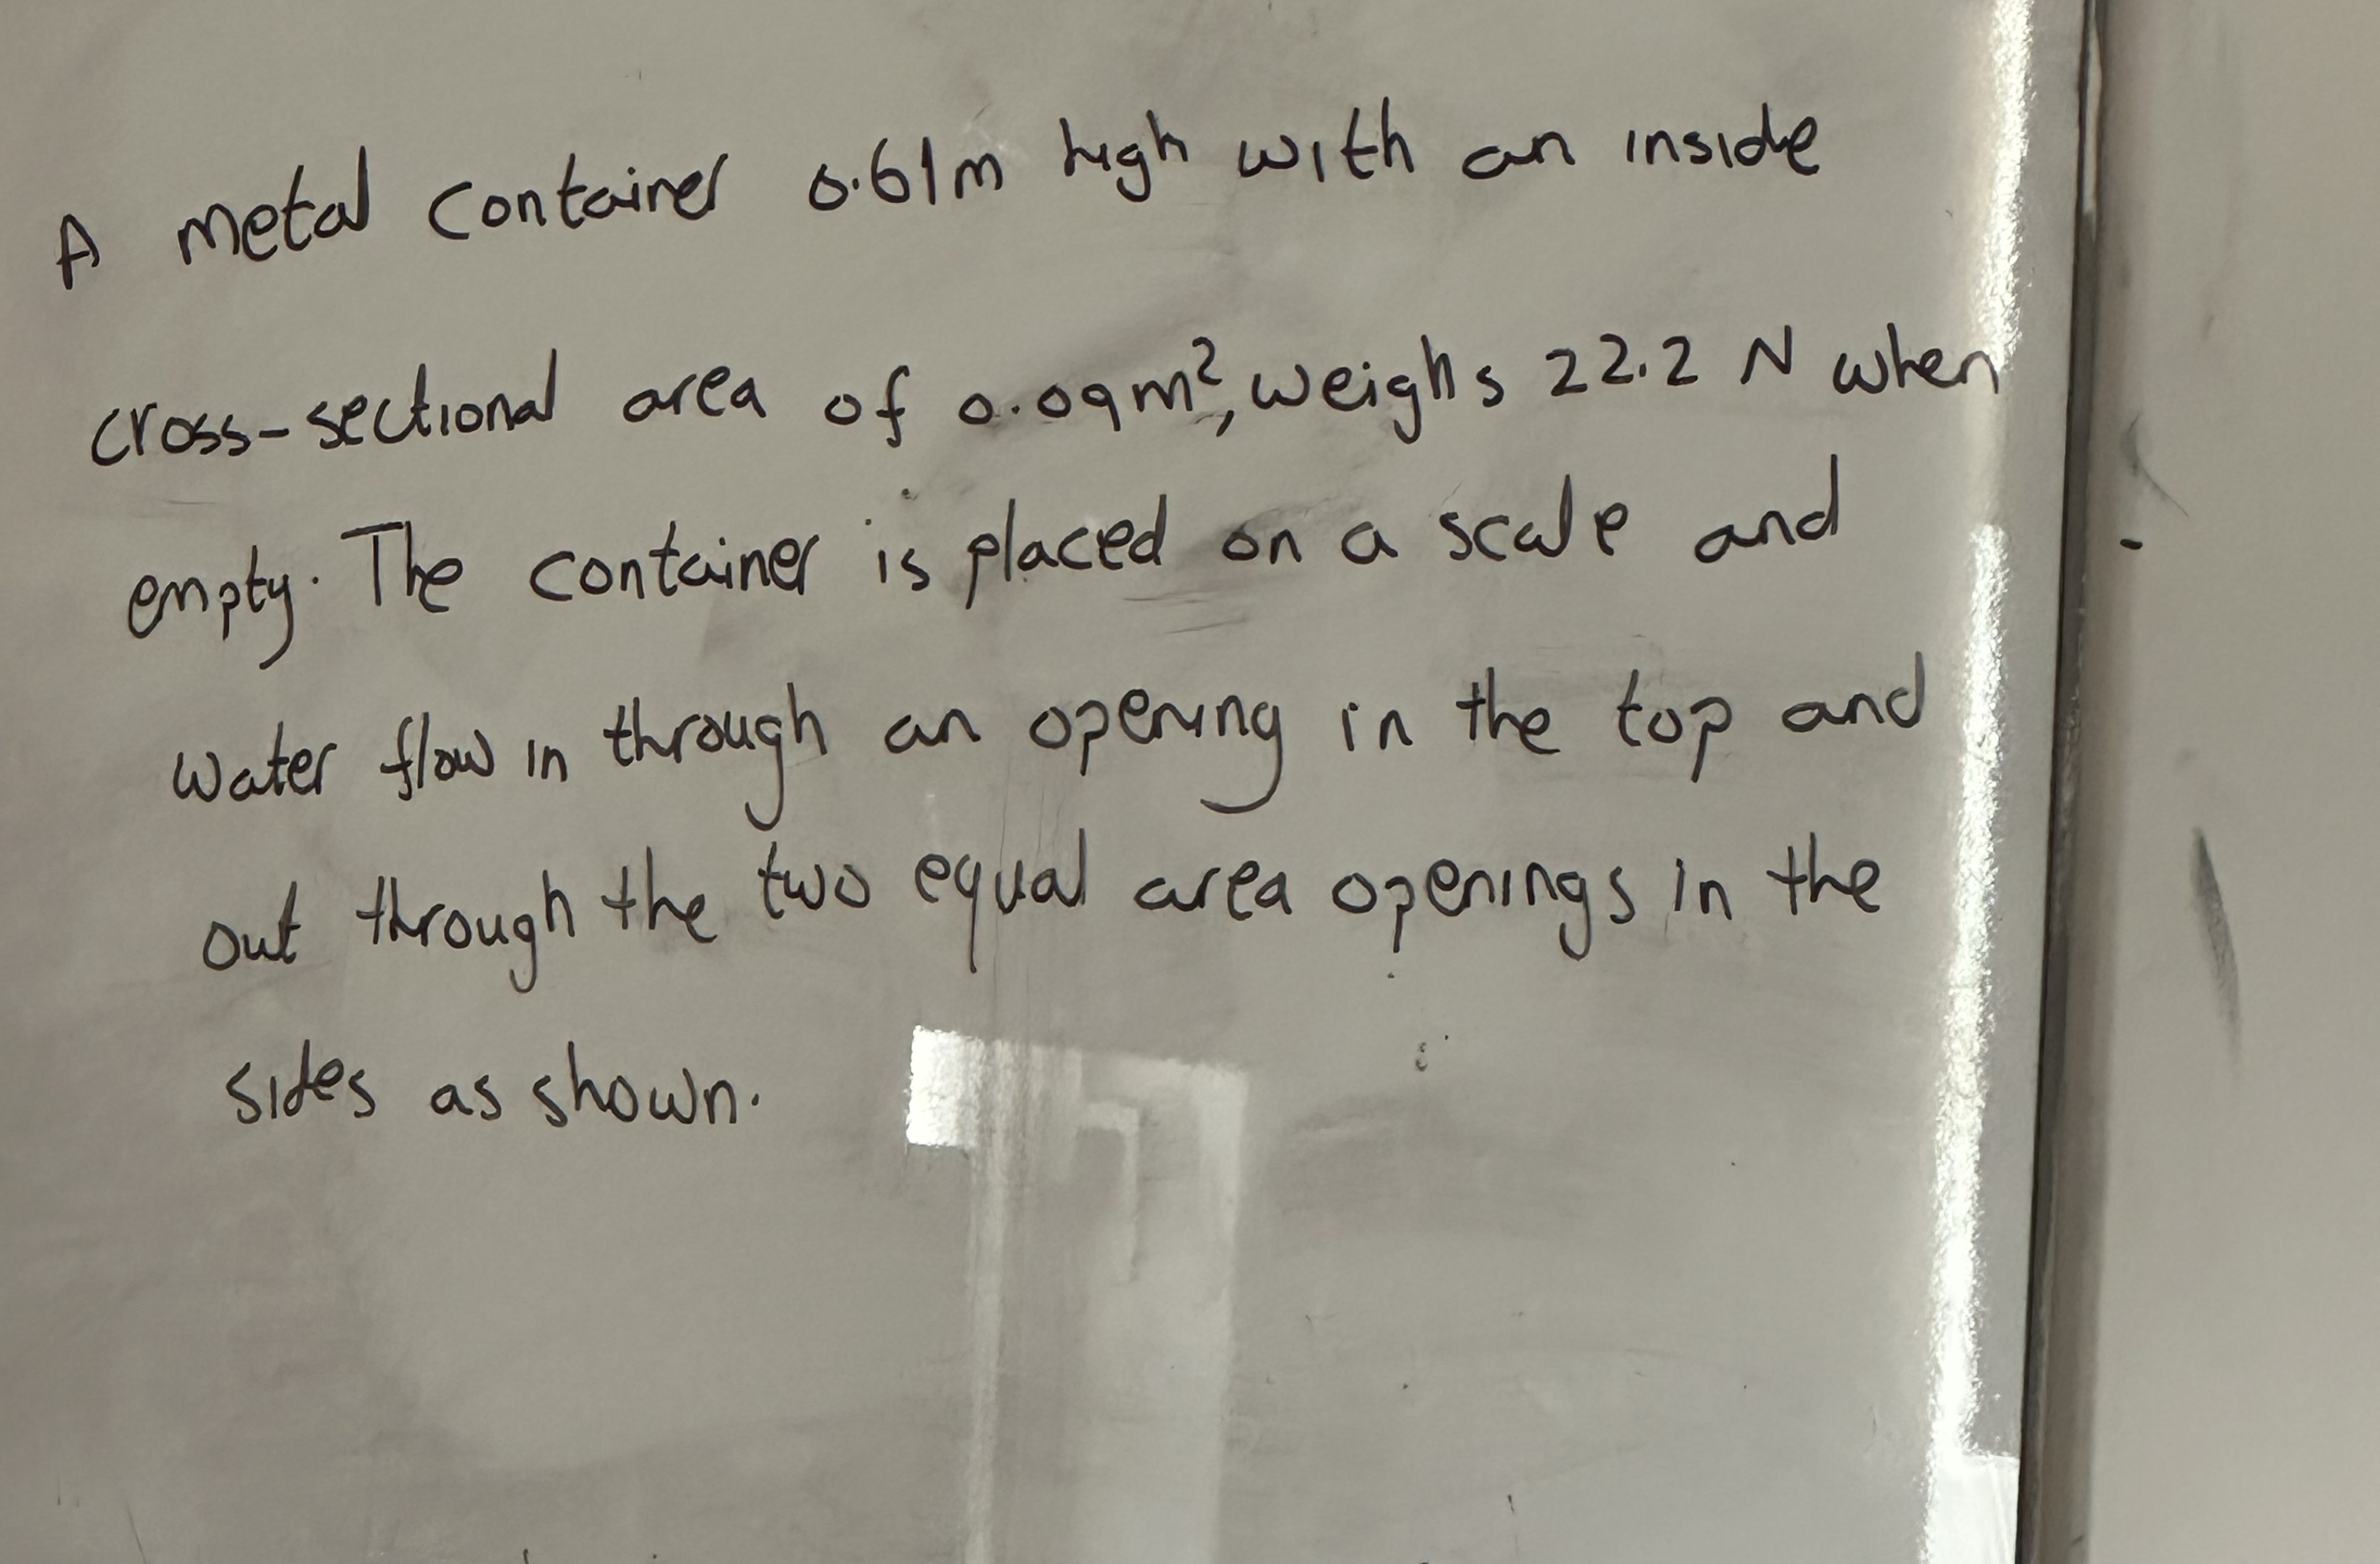 A metal container 0.61m high with an inside
cross-sectional area of 0.09m², weighs 22.2 N when
empty. The container is placed on a scale and
water flow in through an opening in the top and
out through the two equal area openings in the
sides as shown.